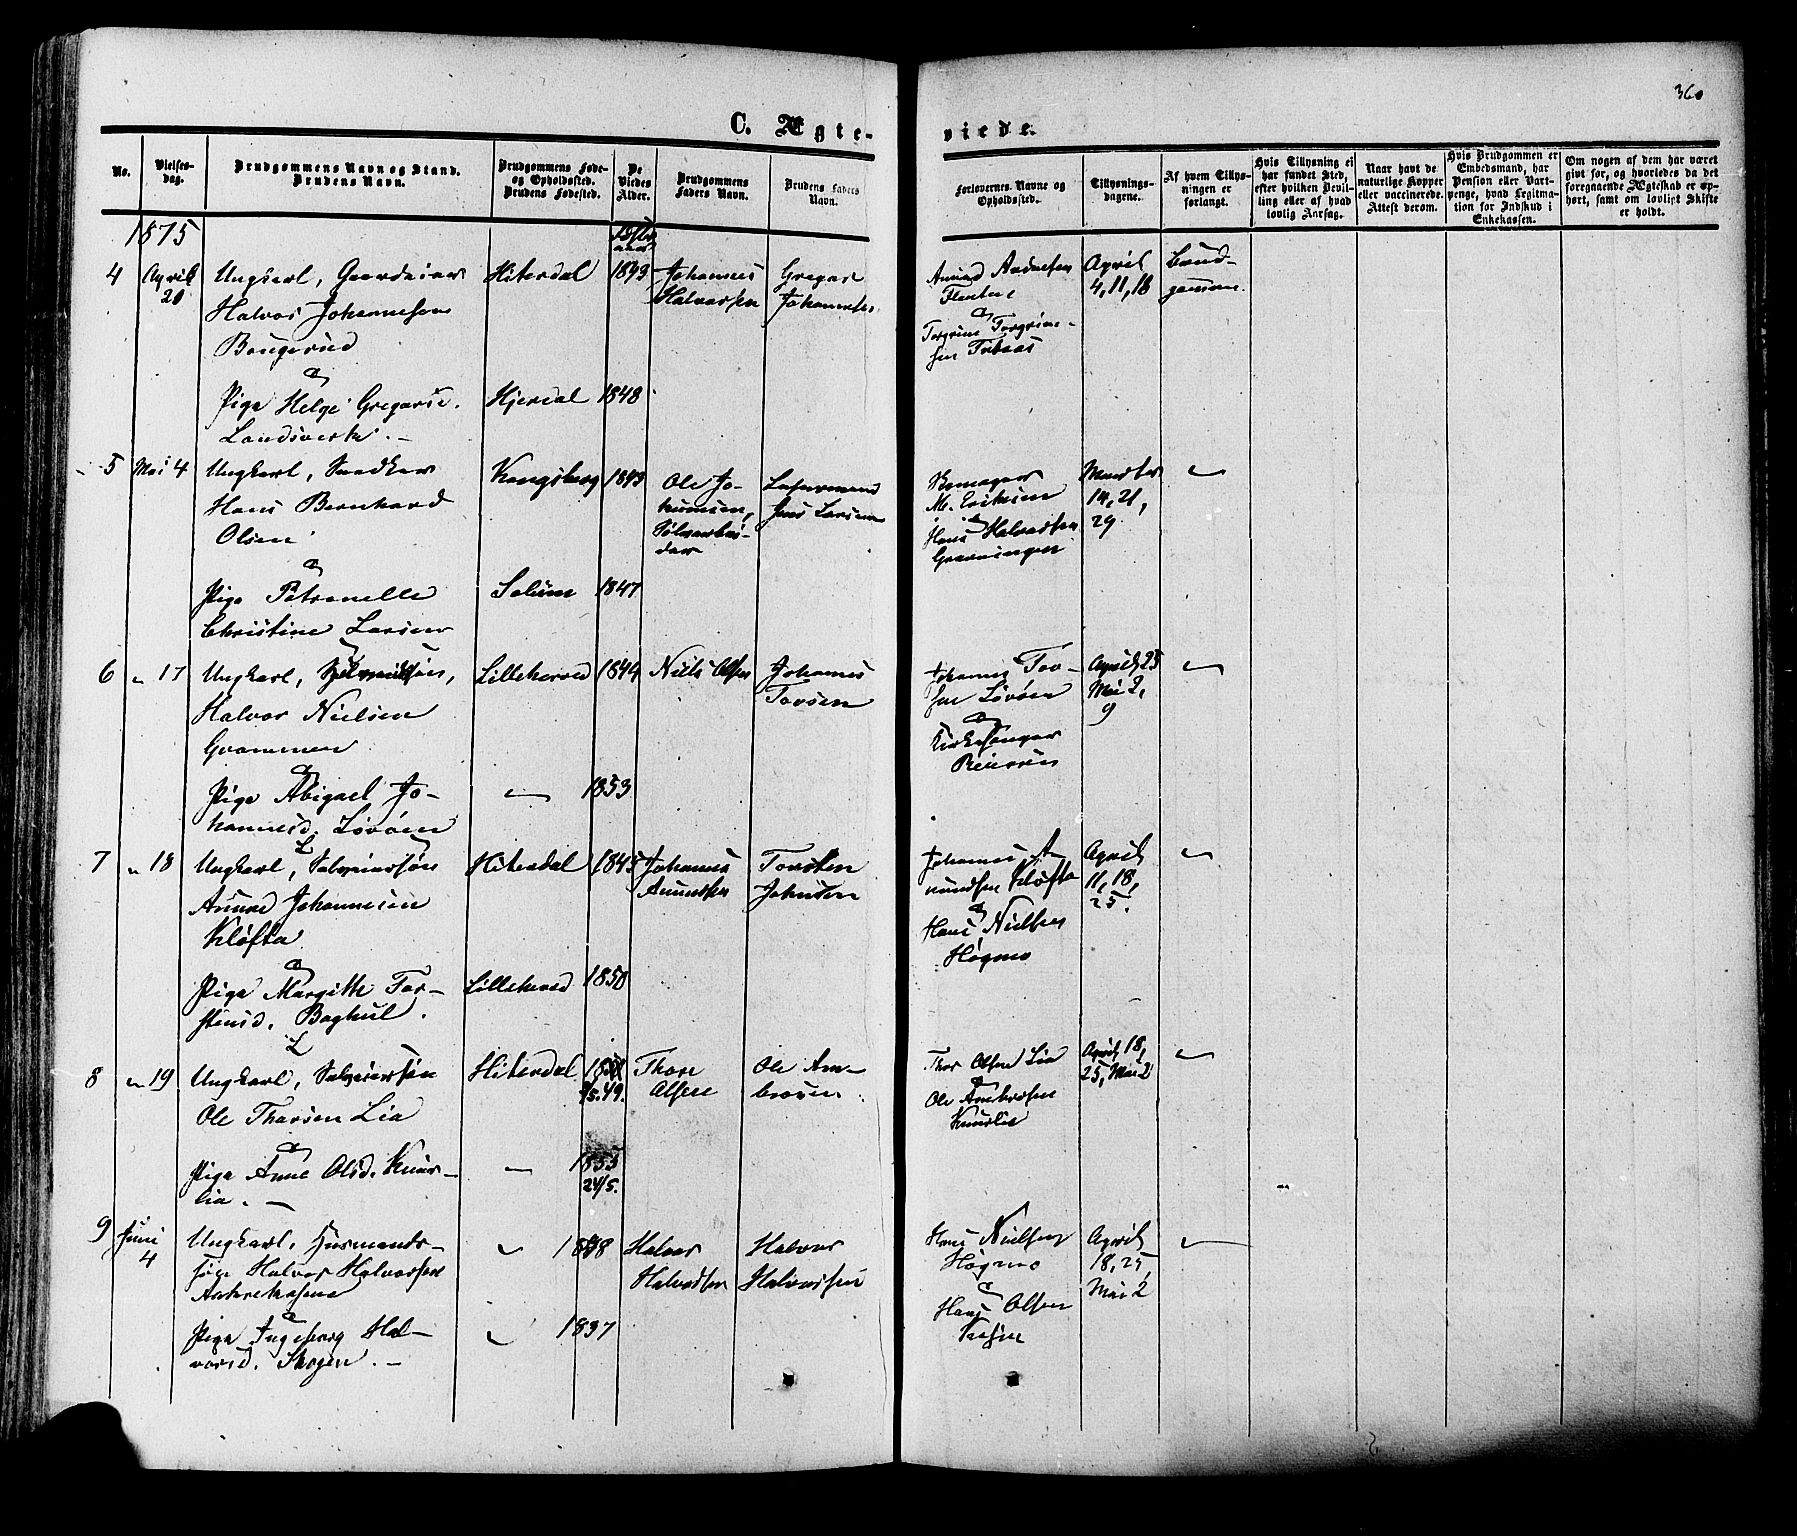 360
C. Ægte-
viede.
No.
Vielses-
dag.
Brudgommens Navn og Stand.
Brudens Navn.
Brudgommens Føde-
og Opholdssted.
Brudens Fødested.
De
Viedes
Alder.
Brudgommens
Faders Navn.
Brudens Faders
Navn.
Forlovernes Navne og
Opholdssted.
Tillysnings-
dagene.
Af hvem Tillys-
ningen er
forlangt.
Hvis Tillysning ei
har fundet Sted,
efter hvilken Bevil-
ling eller af hvad
lovlig Aarsag.
Naar havt de
naturlige Kopper
eller vaccinerede.
Attest derom.
Hvis Brudgommen er
Embedsmand, har
Pension eller Vart-
penge, hvad Legitima-
tion for Indskud i
Enkekassen.
Om nogen af dem har været
givt før, og hvorledes da det
foregaaende Ægteskab er op-
hørt, samt om lovligt Skifte
er holdt.
1875
4 April 20
Ungkarl, Gaardeier
Halvor Johannesen
Baugerud
&
Pige Helge Gregarsd.
Landsverk. –
Hiterdal 1843
Hjerdal 1848
Johannes
Halvorsen
Gregar
Johannesen
Torgrim Torgrim-
sen
April
4, 11, 18
Brud-
gommen.
5 Mai 4
Ungkarl, Snedker
Hans Bernhard
Olsen
&
Pige Petronelle
Christine Larsen
Kongsberg 1849
Solum 1847
Ole Jo-
Jens Larsen
M. Eriksen
&
Hans Halvorsen
Grønningen
Marts
14, 21,
29
6 " 17
Ungkarl,
Halvor Nielsen
Grammen
&
Pige Abigael Jo-
hannesd. Løvøen
Lilleherred 1844
" 1853
Niels Olsen
Johannes
Torsen
Johannes Tor-
sen Løvøen
&
Kirkesanger
April 25
Mai 2,
9
7 " 18
Ungkarl, Selveiersøn
Anund Johannesen
Kløfta
&
Pige Margith Tor-
stensd. Baghul.
Hiterdal 1845
Lilleherred 1850
Johannes
Anundsen
Torsten
Johnsen
Johannes A-
nundsen Kløfta
&
Hans Nielsen
Høgmo
April
11, 18,
25.
8 " 19
Ungkarl, Selveiersøn
Ole Thorsen Lia
&
Pige Anne Olsd. Knurr-
lia. –
Hiterdal
" 1853
24/5.
Thore
Olsen
Ole Am-
Thor Olsen Lia
&
April 18,
25, Mai 2
9 Juni 4
Ungkarl, Husmands-
søn Halvor Halvorsen
&
Pige Ingeborg Hal-
vorsd. Skogen. –
" 1848
" 1837
Halvor
Halvorsen
Halvor
Halvorsen
Hans Nielsen
Høgmo
&
Hans Olsen
April
18, 25,
Mai 2